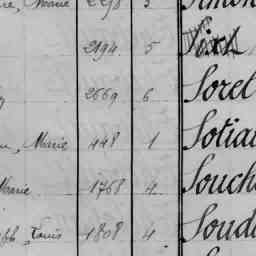 Marie 2298 3 Simon
2194 5
2669 6 Soret
Marie 448 1 Sotia
Marie 1768 4 Souch
Louis 1808 4 Soud